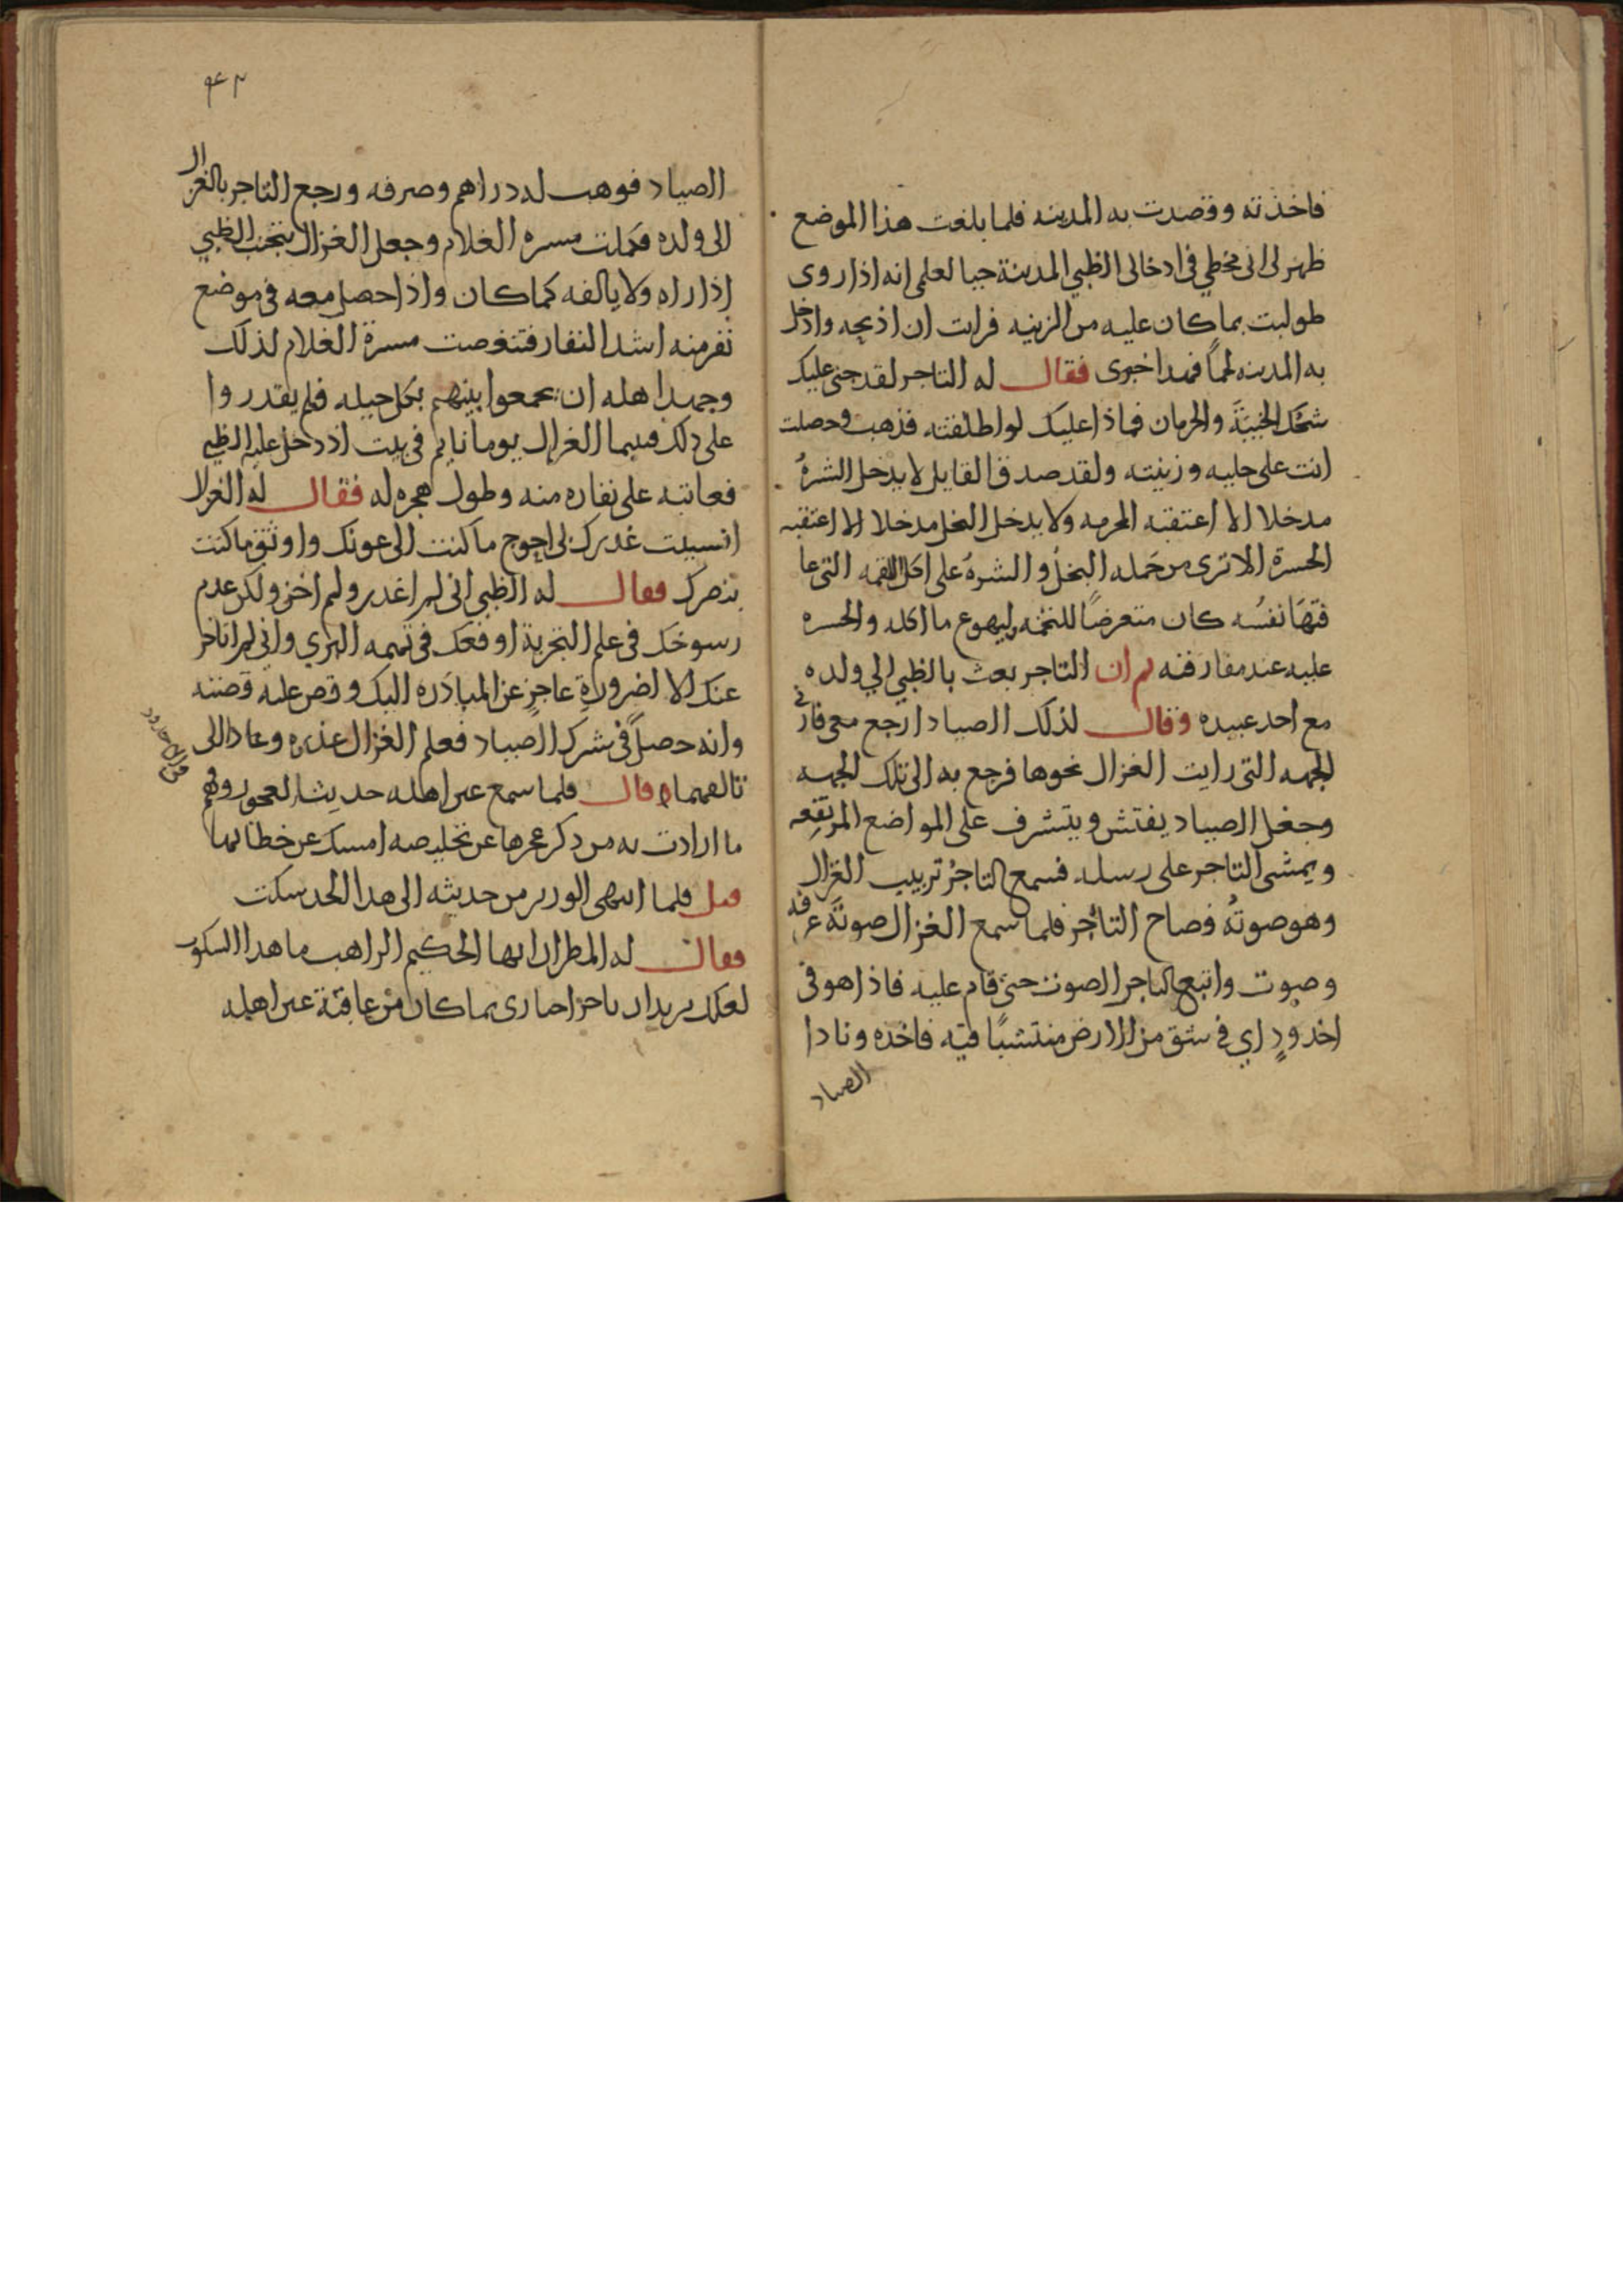 فاخذته وقصدت به المدينه فلما بلغت هذا الموضع
ظهر لى انى مخطي في ادخالى الظبي المدينة حيا لعلمى انه اذا روى
طولبت بما كان عليه من الزينه فرايت ان اذبحه وادخل
به المدينه لحمًا فهدا خبرى فقال له التاجر لقد جنى عليك
شحك الخيبَة والحرمان فماذا عليك لو اطلقته فذهب وحصلت
انت على حليه وزينته ولقد صدق القايل لا يدخل الشرهُ
مدخلا الا اعتقبه الحرمه ولا يدخل البخل مدخلا الا اعتقبه
الحسرة الا ترى من حَمله البخلُ والشرهُ على اكل اللقمه التى عا
فتهَا نفسُه كان متعرضًا للتخمه وليهوع ما اكله والحسره
عليه عند مفارقته ثم ان التاجر بعث بالظبي الي ولده
مع احد عبيده وقال لذلك الصياد ارجع معى فارنى
الجهه التى رايت الغزال نحوها فرجع به الى تلك الجهه
وجعل الصياد يفتش ويتشرف على المواضع المرتفعه
ويمشى التاجر على رسله فسمع التاجرُ تربيب الغزال
وهو صوتُه فصاح التاجر فلما سمع الغزال صوتَه عرفه
وصوت واتبع التاجر الصوت حتى قام عليه فاذا هو فى
اخدودٍ اي في شق من الارض منتشبًا فيه فاخذه ونادا
الصياد
٩٤٢
الصياد فوهب له دراهم وصرفه ورجع التاجر بالغزال
الى ولده فكملت مسره الغلام وجعل الغزال يتجنب الظبي
اذا راه ولا يالفه كما كان واذا حصل معه فى موضع
نفر منه اشد النفار فتنغصت مسرة الغلام لذلك
وجهد اهله ان يجمعوا بينهم بكل حيله فلم يقدروا
على ذلك فبيما الغزال يوما نايم فى بيت اذ دخل عليه الظبي
فعاتبه على نفاره منه وطول هجره له فقال له الغزال
انسيت غدرك بى احوج ما كنت الى عونك واوثق ما كنت
بنصرك فقال له الظبي انى لم اغدر ولم اخن ولكن عدم
رسوخك فى علم التجربة اوقعك فى تهمه البري واني لم اتاخر
عنك الا لضرورةِ عاجزٍ عن المبادَره اليك وقص عليه قصته
وانه حصلَ فى شرك الصياد فعلم الغزال عذره وعاد الى
تالفهما وقال فلما سمع عين اهله حديث العجوز وفهم
ما ارادت به من ذكر عجزها عن تخليصه امسك عن خطابها
قيل فلما انتهى الوزير من حديثه الى هذا الحد سكت
فقال له المطران ايها الحكيم الراهب ما هذا السكوت
لعلك تريد ان تاخذ اخبارى بما كان من عاقبة عين اهله